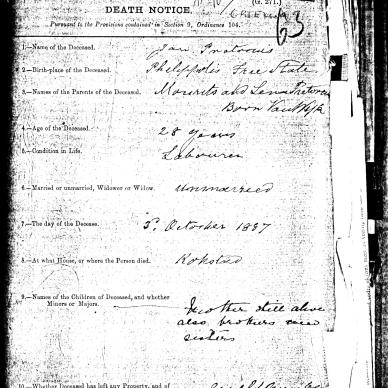 (G. 271.)
63
DEATH NOTICE.
Pursuant to the Provisions contained in Section 9, Ordinance 104.
1.—Name of the Deceased. Jan Pretorius
2.—Birth-place of the Deceased. Philippolis Free State
3.—Names of the Parents of the Deceased. Mourits and Lena Pretorius
Born
4.—Age of the Deceased. 28 years
5.—Condition in Life. Labourer
6.—Married or unmarried, Widower or Widow. Unmarried
7.—The day of the Decease. October 1897
8.—At what House, or where the Person died. Kokstad
9.—Names of the Children of Deceased, and whether
Minors or Majors.
Mother still alive
also brothers and
sisters
10.—Whether Deceased has left any Property, and of